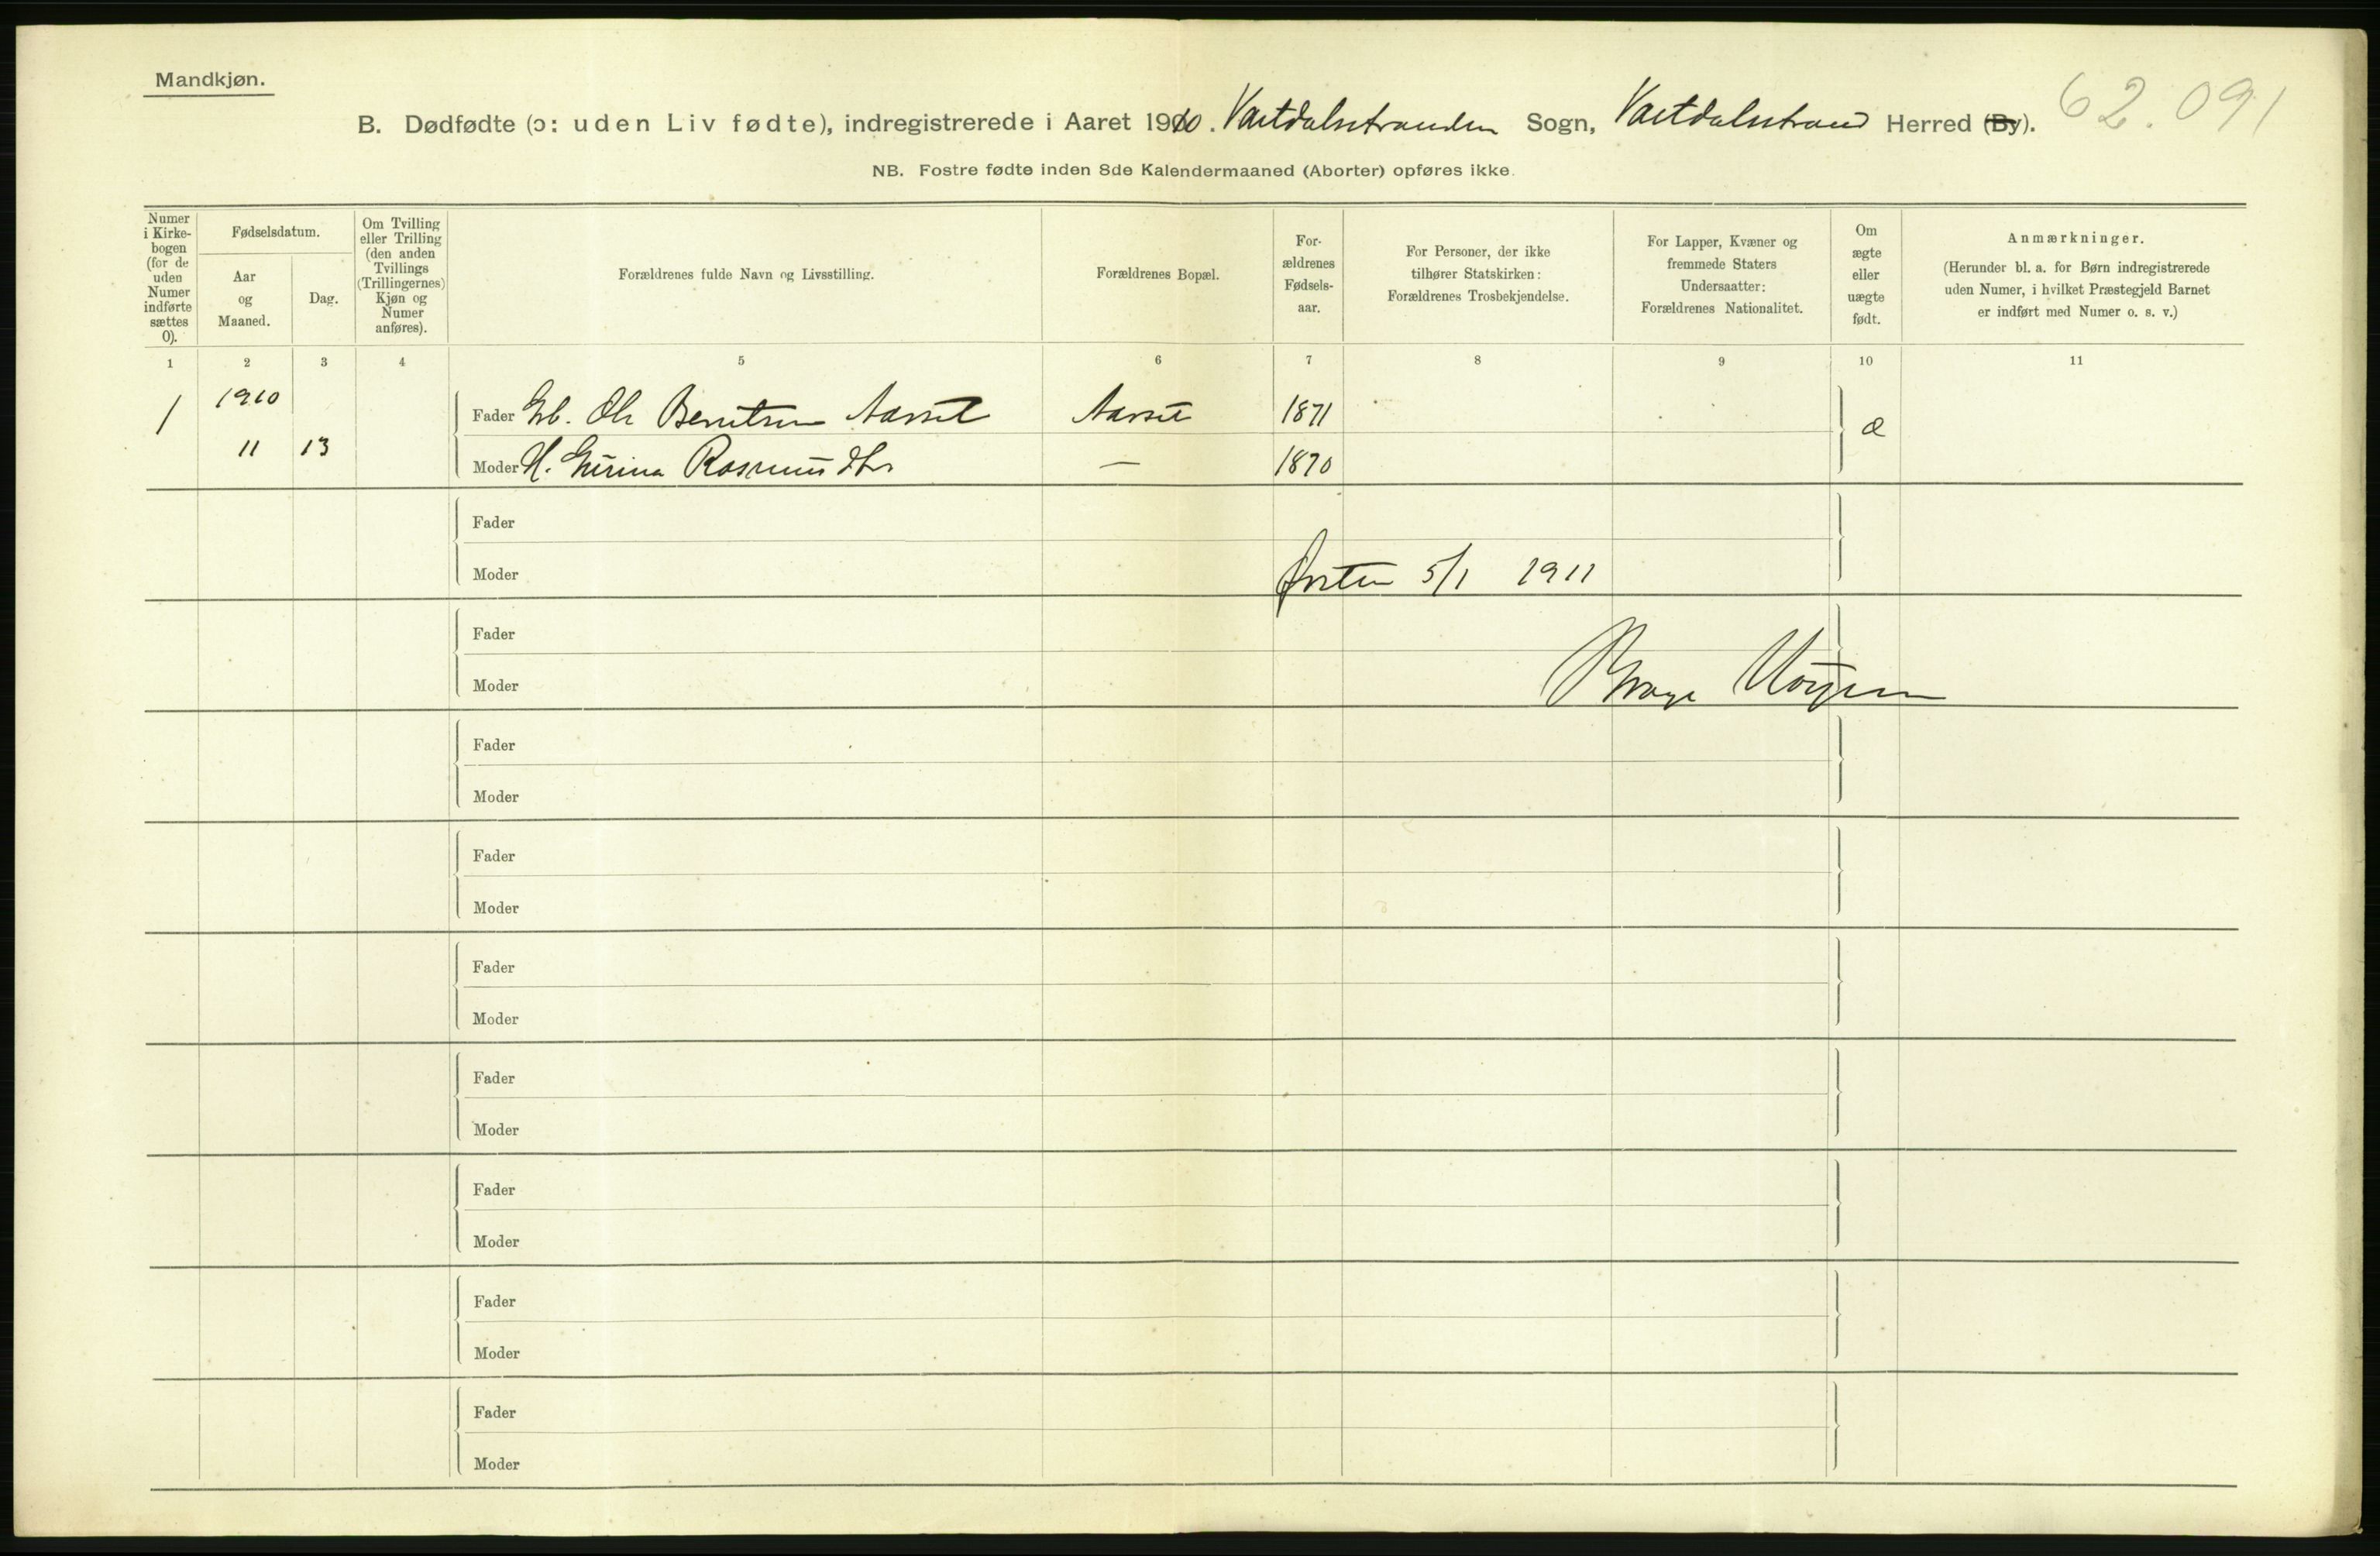 Mandkjøn.
B. Dødfødte (ɔ: uden Liv fødte), indregistrerede i Aaret 1910. Vartdalsstranden Sogn, Vartdalsstrand Herred (By).
62.091
NB. Fostre fødte inden 8de Kalendermaaned (Aborter) opføres ikke.
Numer
i Kirke-
bogen
(for de
uden
Numer
indførte
sættes
0).
Fødselsdatum.
Aar
og
Maaned.
Dag.
Om Tvilling
eller Trilling
(den anden
Tvillings
(Trillingernes)
Kjøn og
Numer
anføres).
Forældrenes fulde Navn og Livsstilling.
Forældrenes Bopæl.
For-
ældrenes
Fødsels-
aar.
For Personer, der ikke
tilhører Statskirken:
Forældrenes Trosbekjendelse.
For Lapper, Kvæner og
fremmede Staters
Undersaatter:
Forældrenes Nationalitet.
Om
ægte
eller
uægte
født.
Anmærkninger.
(Herunder bl. a. for Børn indregistrerede
uden Numer, i hvilket Præstegjeld Barnet
er indført med Numer o. s. v.)
1 2 3 4 5 6 7 8 9 10 11
1 1910
11 13
Fader Gb. Ole Berntsen Aarset Aarset 1871 æ
Moder H. Gurina Rasmusdtr — 1870
Fader
Moder
Ørsten 5/1 1911
Fader
Moder
Fader
Moder
Fader
Moder
Fader
Moder
Fader
Moder
Fader
Moder
Fader
Moder
Fader
Moder